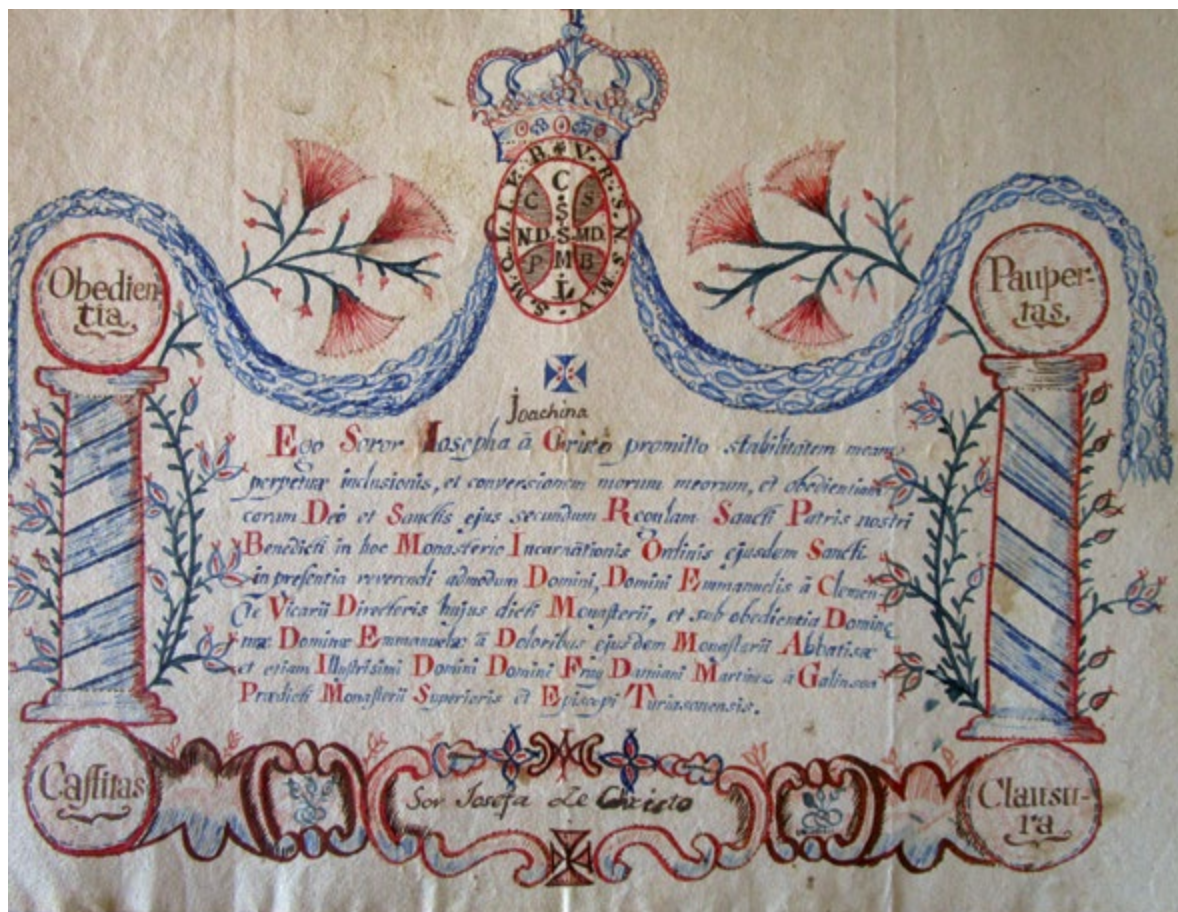 B V R S N S M V
S M Q L I V
C
C S
S
N.D.S.MD.
S
P M B
L
Obedien-
tia
Pauper-
tas,
Joachina
Ego Soror Iosepha â Christo promitto stabilitatem meam,
perpetuæ inclusionis, et conversionem morum meorum, et obedientiam
coram Deo et Sanctis ejus secundum Regulam Sancti Patris nostri
Benedicti in hoc Monasterio Incarnationis Ordinis ejusdem Sancti
in presentia reverendi admodum Domini, Domini Emmanuelis â Clemen-
te Vicarii Directoris hujus dicti Monasterii, et sub obedientia Domine
næ Dominæ Emmanuelæ â Doloribus ejusdem Monasterii Abbatisæ
et etiam Illustrisimi Domini Domini Fray Damiani Martinez â Galinsoa
Prædicti Monasterii Superioris et Episcopi Turiasonensis.
Castitas
Sor Josefa de Christo
Clausu-
ra